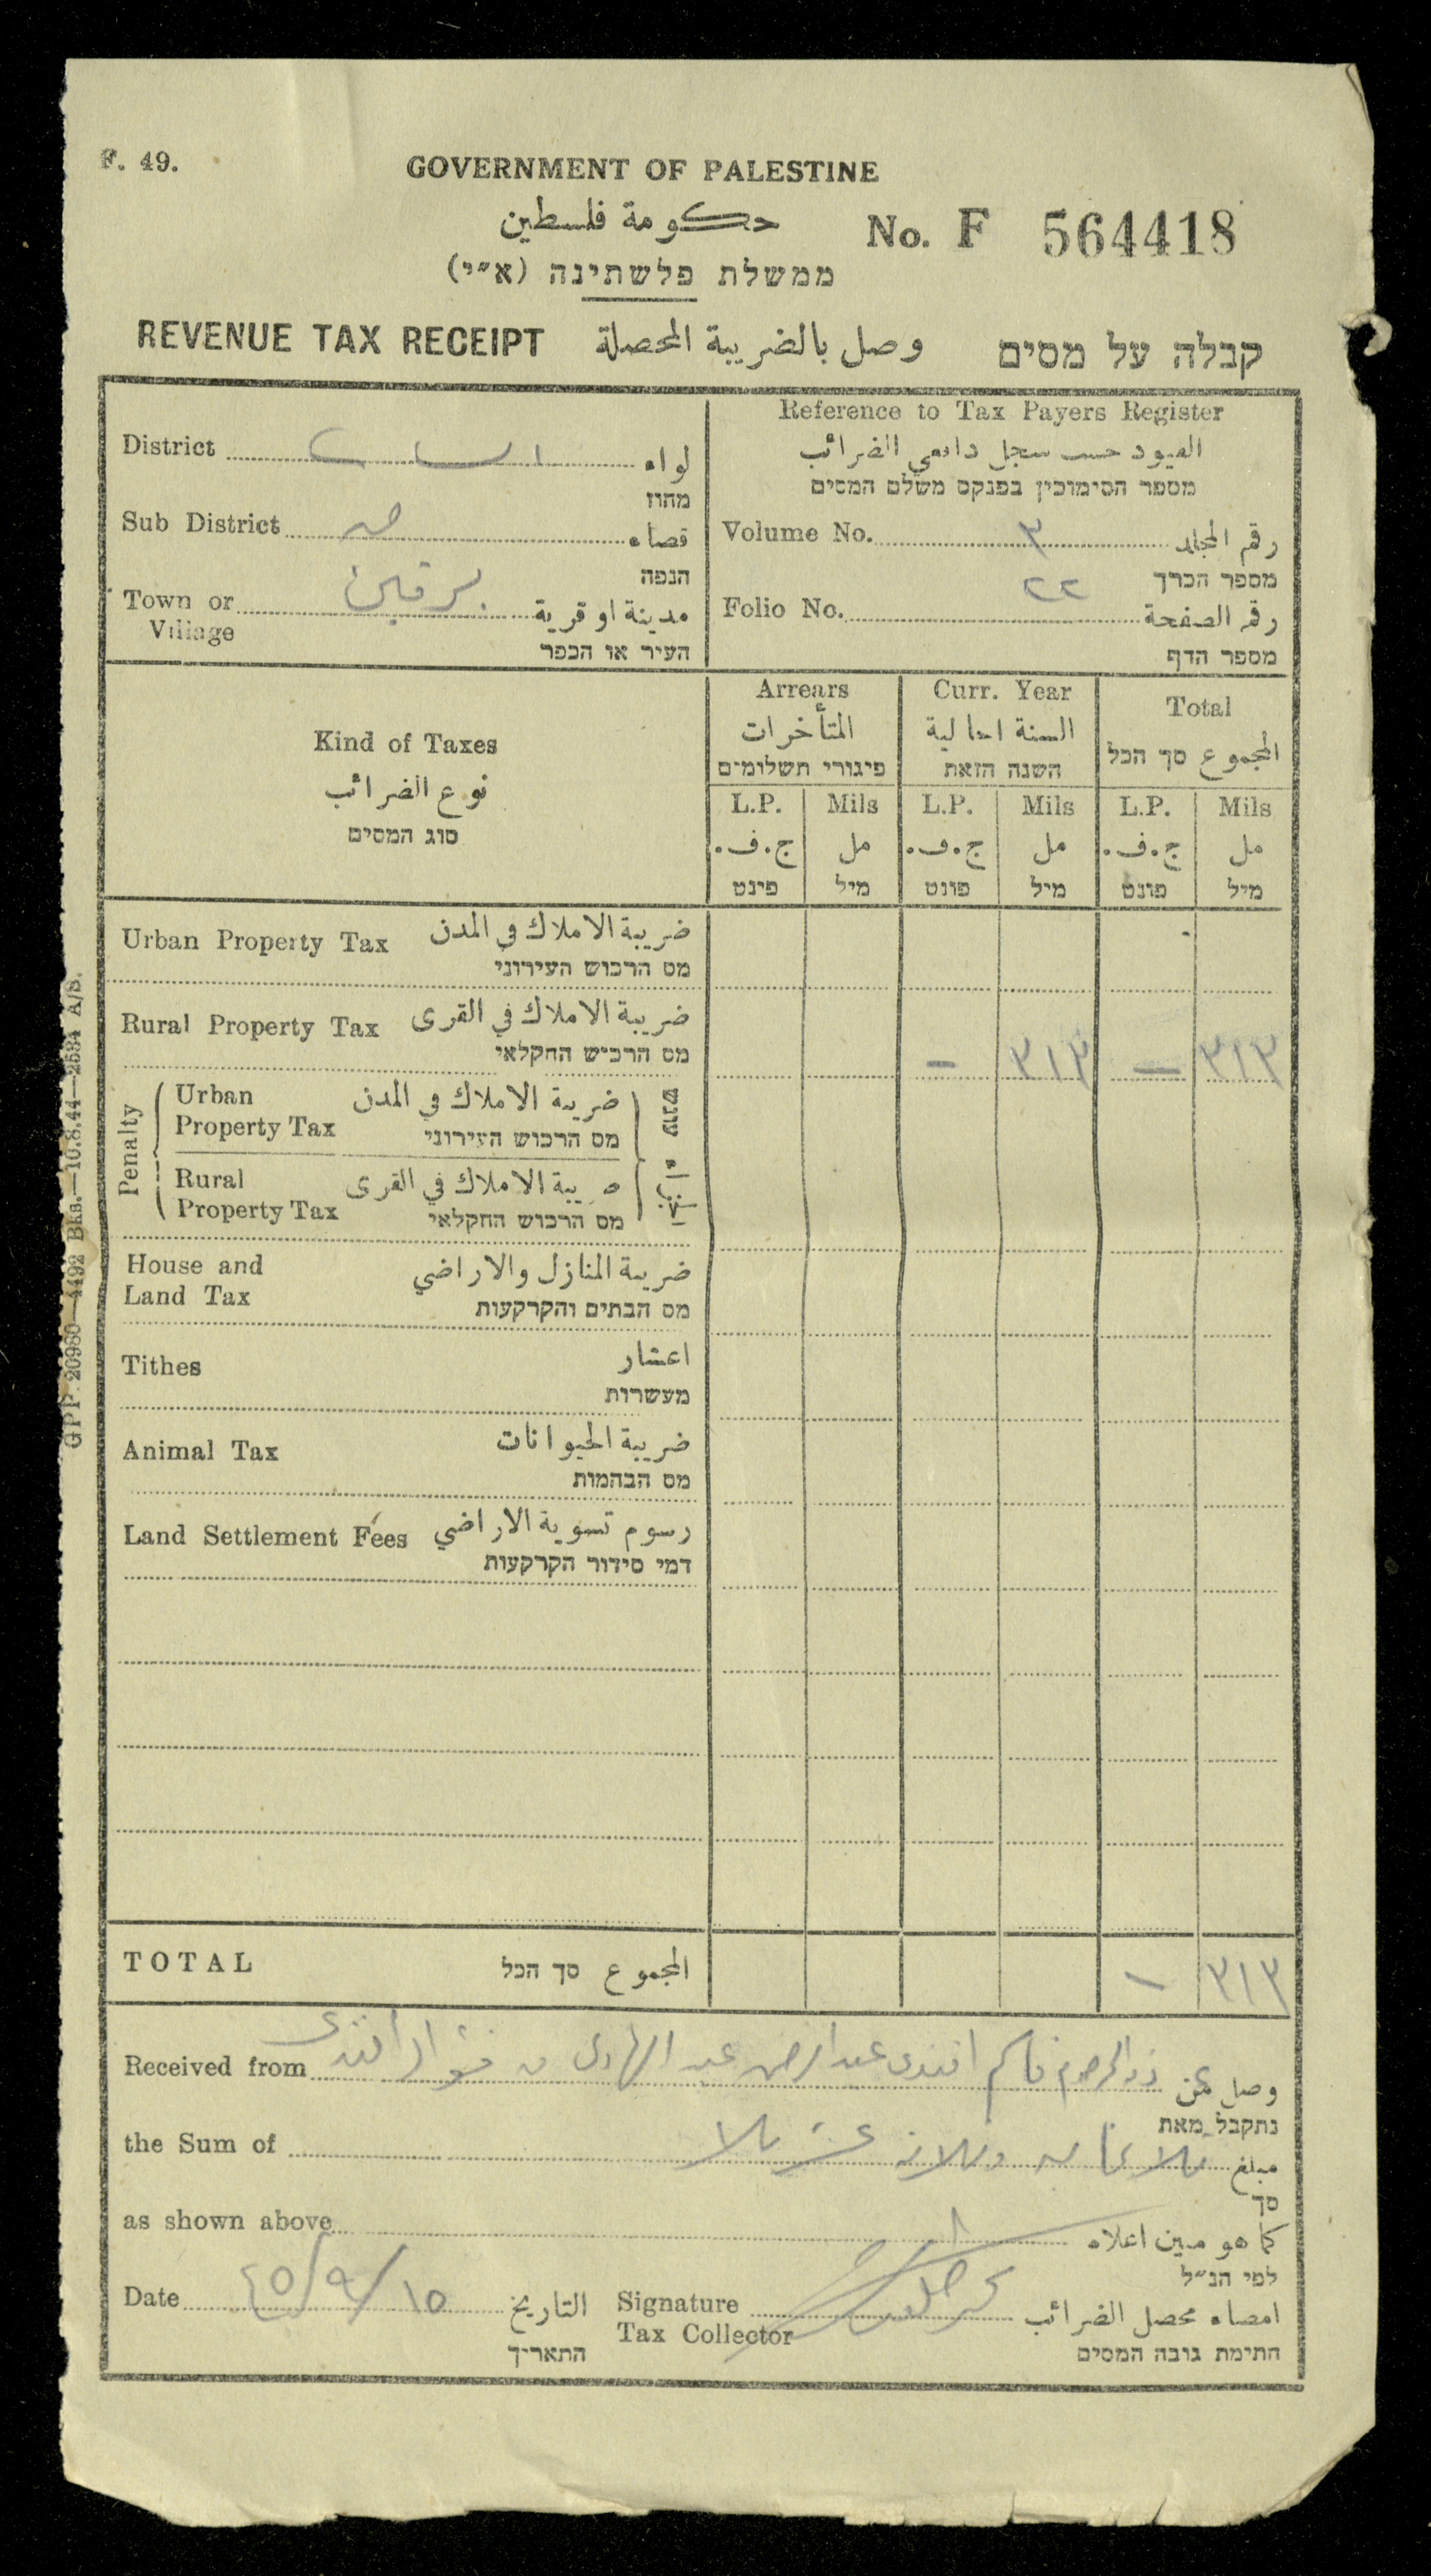 F. 49.
GOVERNMENT OF PALESTINE
حكومة فلسطين
No. F 564418
ממשלת פלשתינה (א״י)
REVENUE TAX RECEIPT وصل بالضريبة المحصلة קבלה על מסים
Reference to Tax Payers Register
القيود حسب سجل دافعي الضرائب
מספר הסימוכין בפנקס משלם המסים
District لواء
מחוז
Sub District قضاء
הנפה
Town or Village برقين مدينة او قرية
העיר או הכפר
Volume No. ٣ رقم المجلد
מספר הכרך
Folio No. ٢٢ رقم الصفحة
מספר הדף
Kind of Taxes
نوع الضرائب
סוג המסים
Arrears
المتأخرات
פיגורי תשלומים
Curr. Year
السنة الحالية
השנה הזאת
Total
المجموع סך הכל
L.P. Mils L.P. Mils L.P. Mils
ج.ف. مل ج.ف. مل ج.ف. مل
פינט מיל פונט מיל פונט מיל
Urban Property Tax ضريبة الاملاك في المدن
מס הרכוש העירוני
Rural Property Tax ضريبة الاملاك في القرى — ٣١٣ — ٣١٣
מס הרכוש החקלאי
Penalty
Urban Property Tax ضريبة الاملاك في المدن
מס הרכוש העירוני
עונש
Rural Property Tax ضريبة الاملاك في القرى
מס הרכוש החקלאי
House and Land Tax ضريبة المنازل والاراضي
מס הבתים והקרקעות
Tithes اعشار
מעשרות
Animal Tax ضريبة الحيوانات
מס הבהמות
Land Settlement Fees رسوم تسوية الاراضي
דמי סידור הקרקעות
TOTAL المجموع סך הכל — ٣١٣
Received from قاسم افندي عبد الرحمن عبد الهادي فؤاد افندي وصل من
נתקבל מאת
the Sum of ثلاثماية وثلاثة عشر ملا مبلغ
סך
as shown above كما هو مبين اعلاه
לפי הנ״ל
Date ١٥/٩/٤٥ التاريخ
התאריך
Signature Tax Collector امضاء محصل الضرائب
חתימת גובה המסים
GPP. 20980—4492 Bks.—10.8.44—2534 A/S.